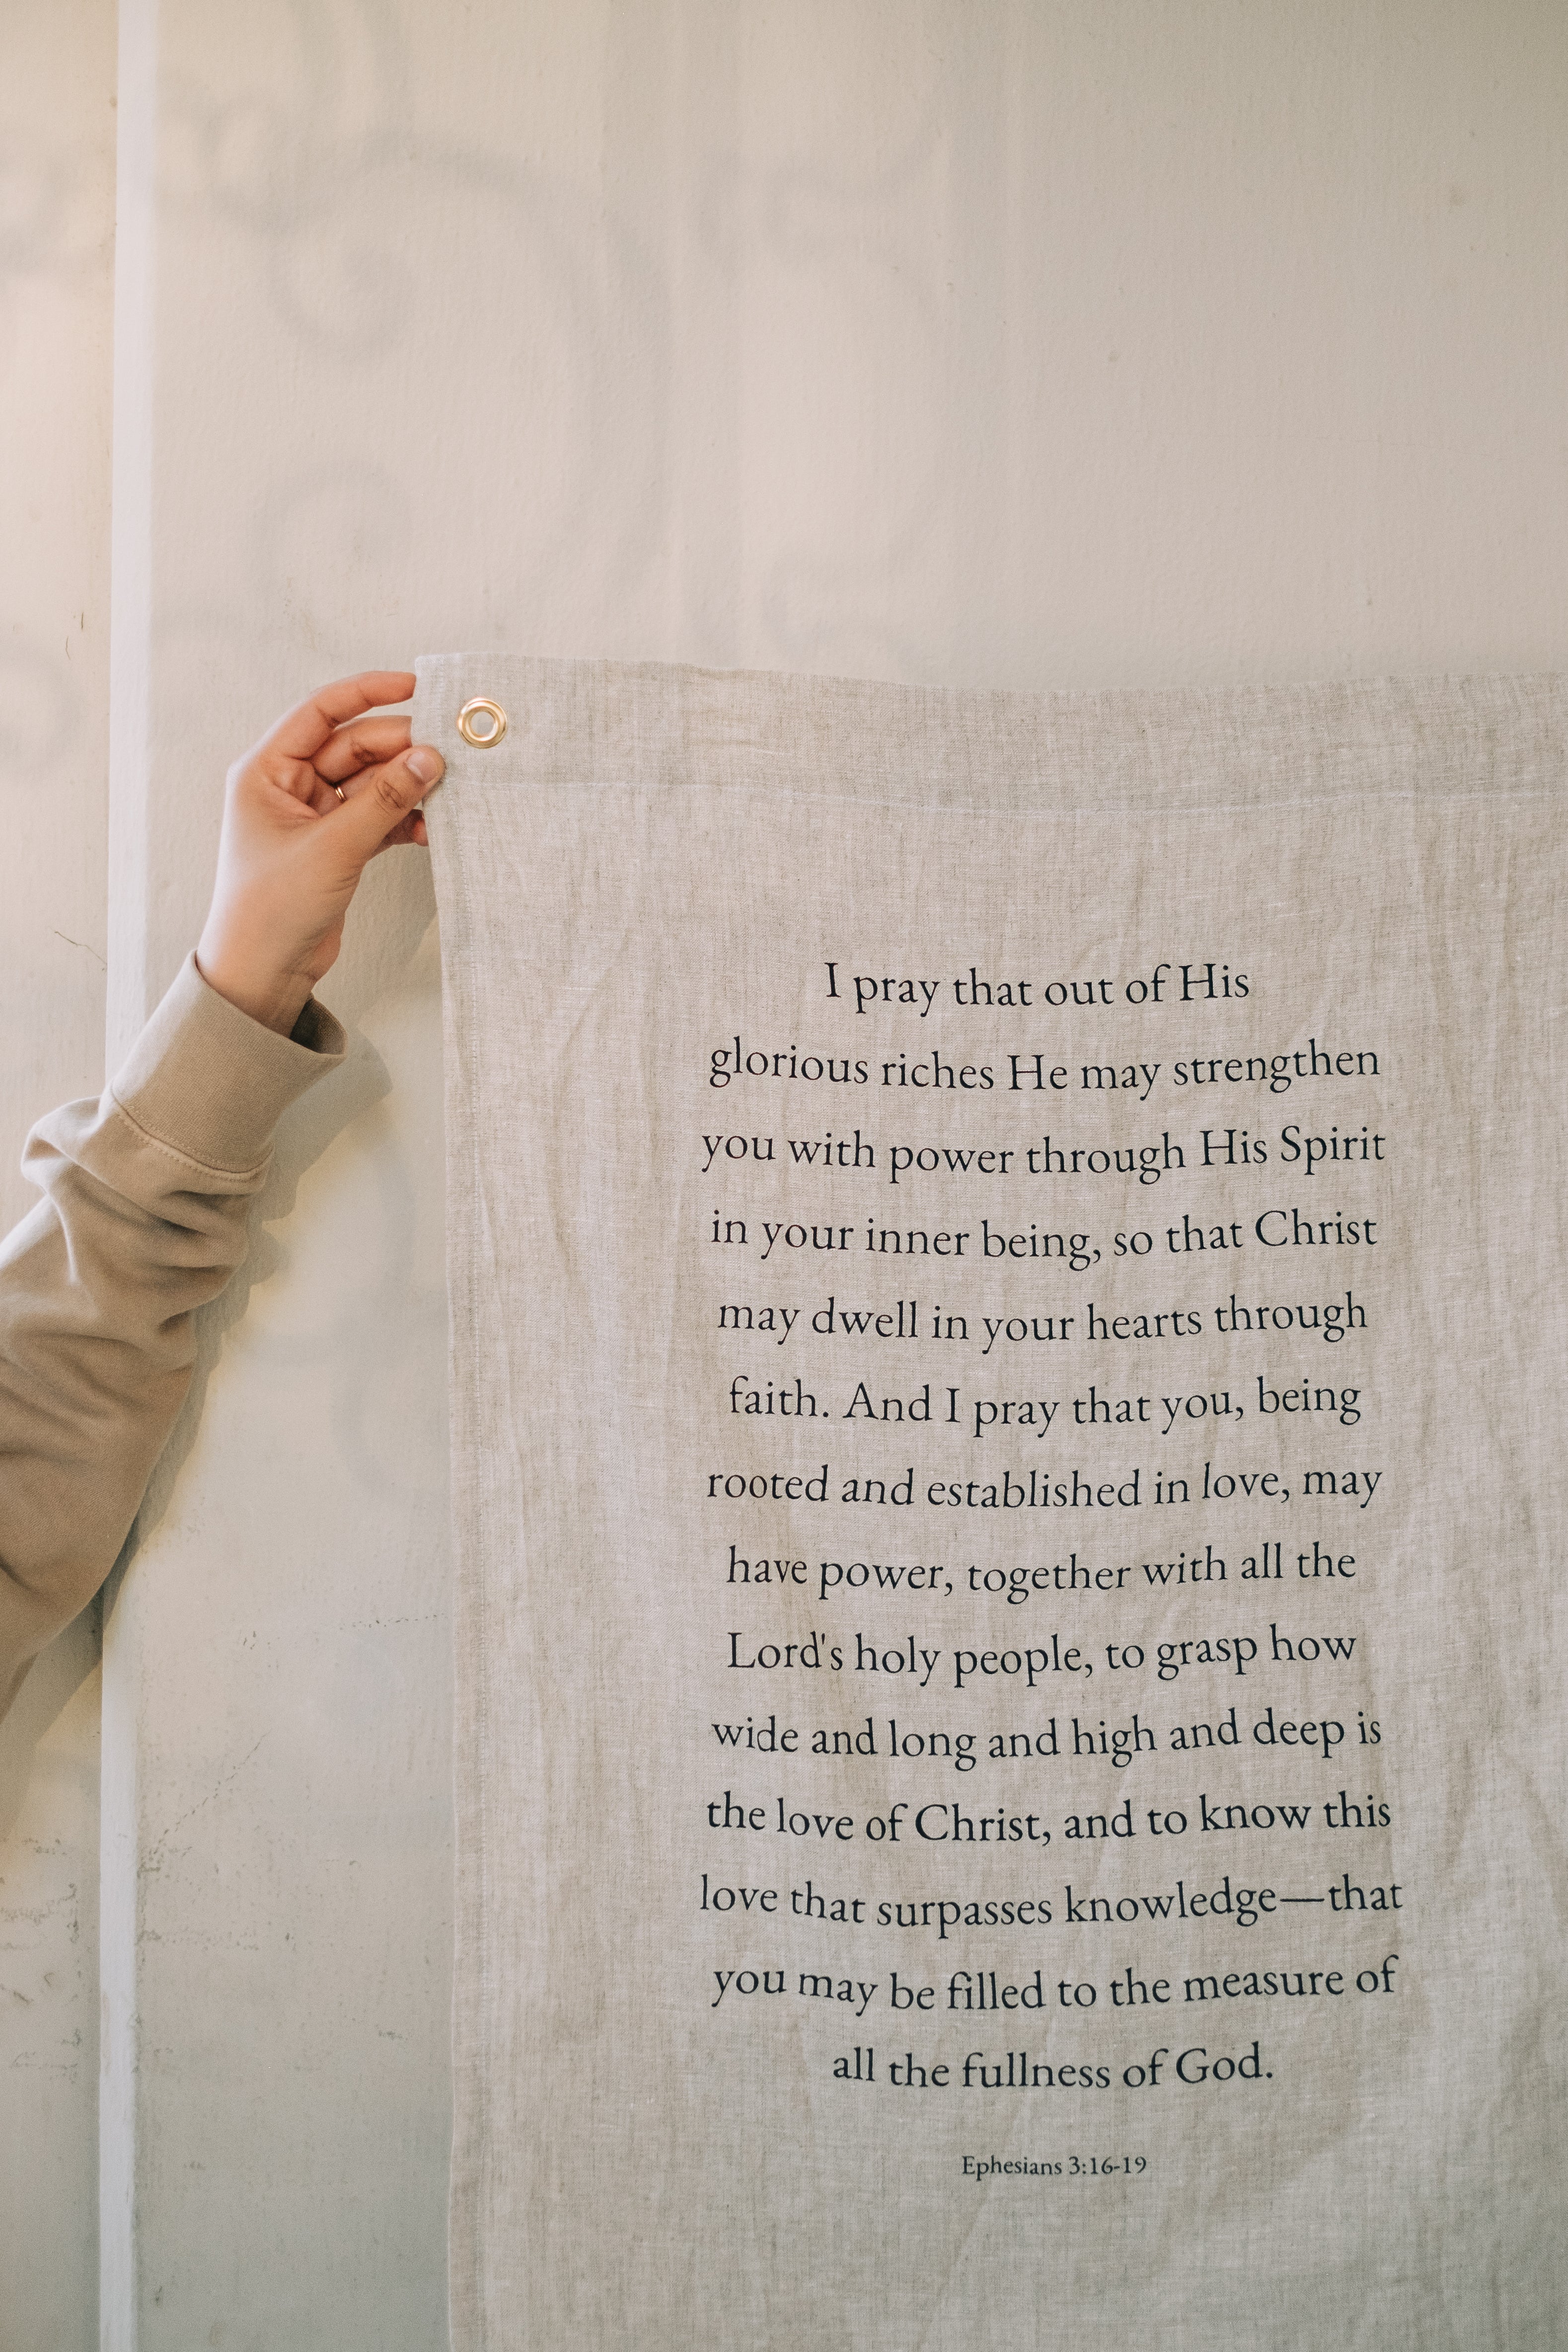 I pray that out of His
glorious riches He may strengthen
you with power through His Spirit
in your inner being, so that Christ
may dwell in your hearts through
faith. And I pray that you, being
rooted and established in love, may
have power, together with all the
Lord's holy people, to grasp how
wide and long and high and deep is
the love of Christ, and to know this
love that surpasses knowledge—that
you may be filled to the measure of
all the fullness of God.
Ephesians 3:16-19